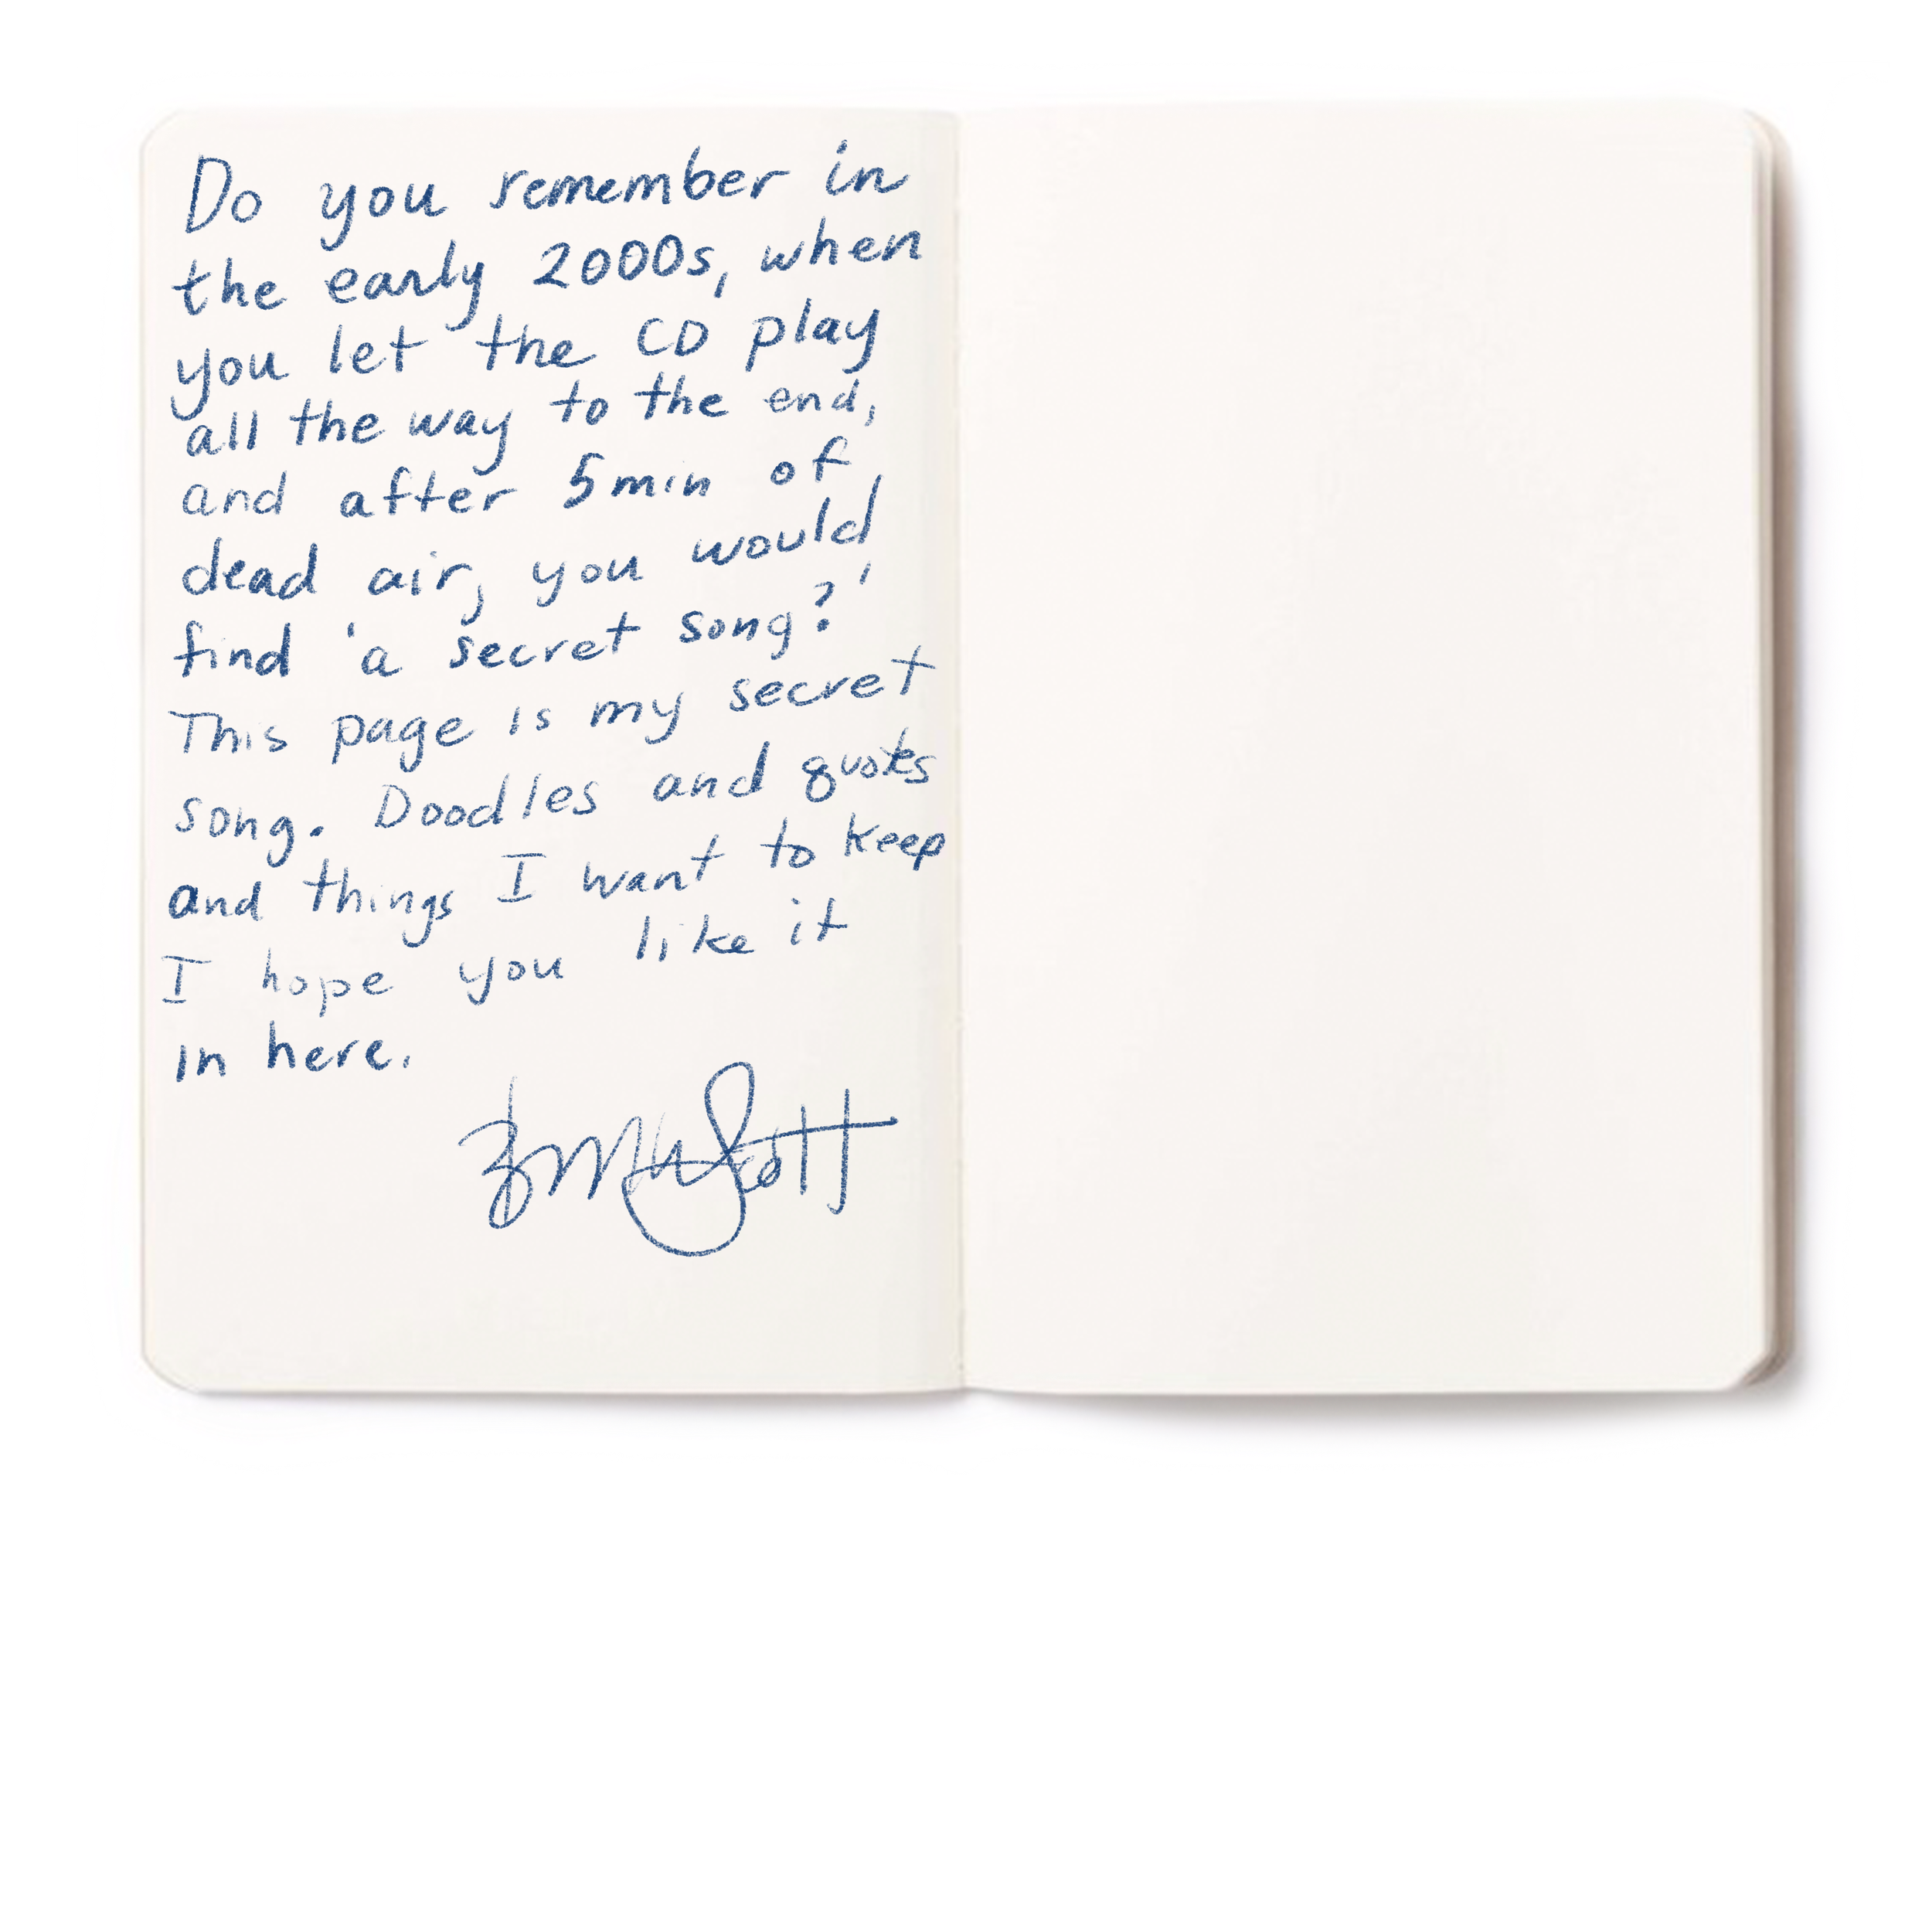 Do you remember in
the early 2000s, when
you let the CD play
all the way to the end,
and after 5min of
dead air, you would
find 'a secret song?'
This page is my secret
song. Doodles and quotes
and things I want to keep
I hope you like it
in here.
Scott